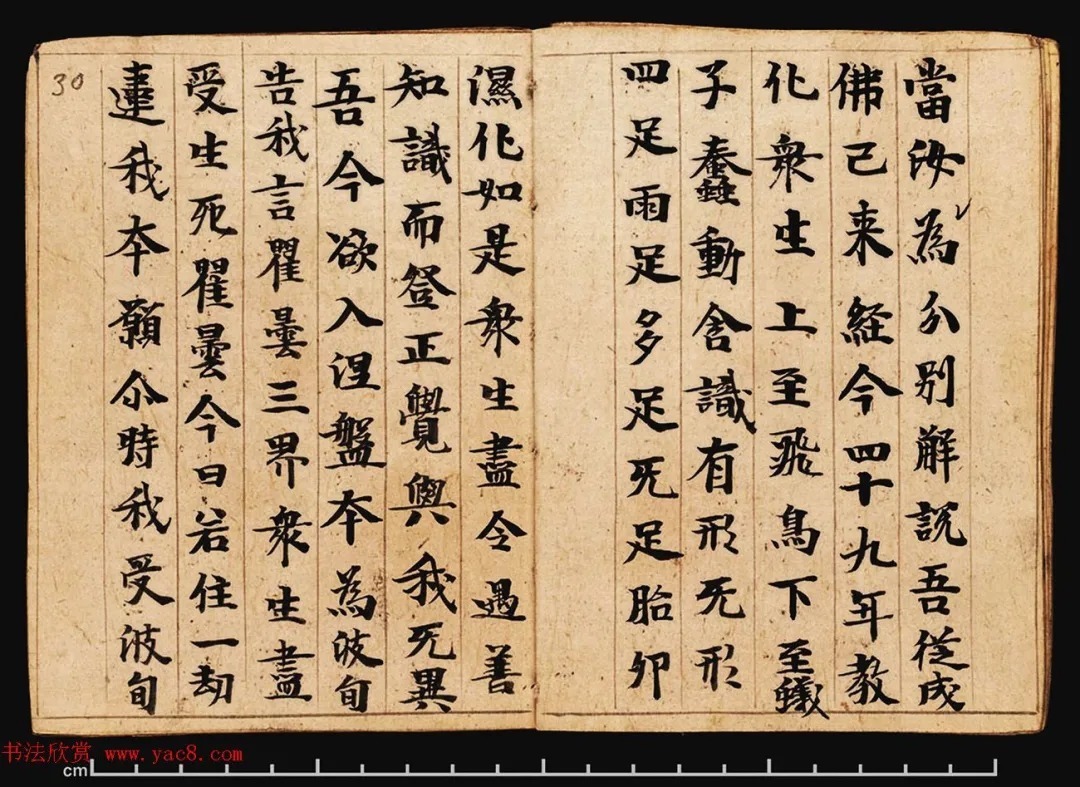 當汝為分別解説吾從成
佛已来経今四十九年教
化衆生上至飛鳥下至蟻
子蠢動含識有形无形
四足雨足多足无足胎卵
濕化如是衆生盡令遇善
知識而登正覺與我无異
吾今欲入涅盤本為波旬
告我言瞿曇三界衆生盡
受生死瞿曇今日若住一劫
違我本願尒時我受波旬
30
书法欣赏 www.yac8.com
cm